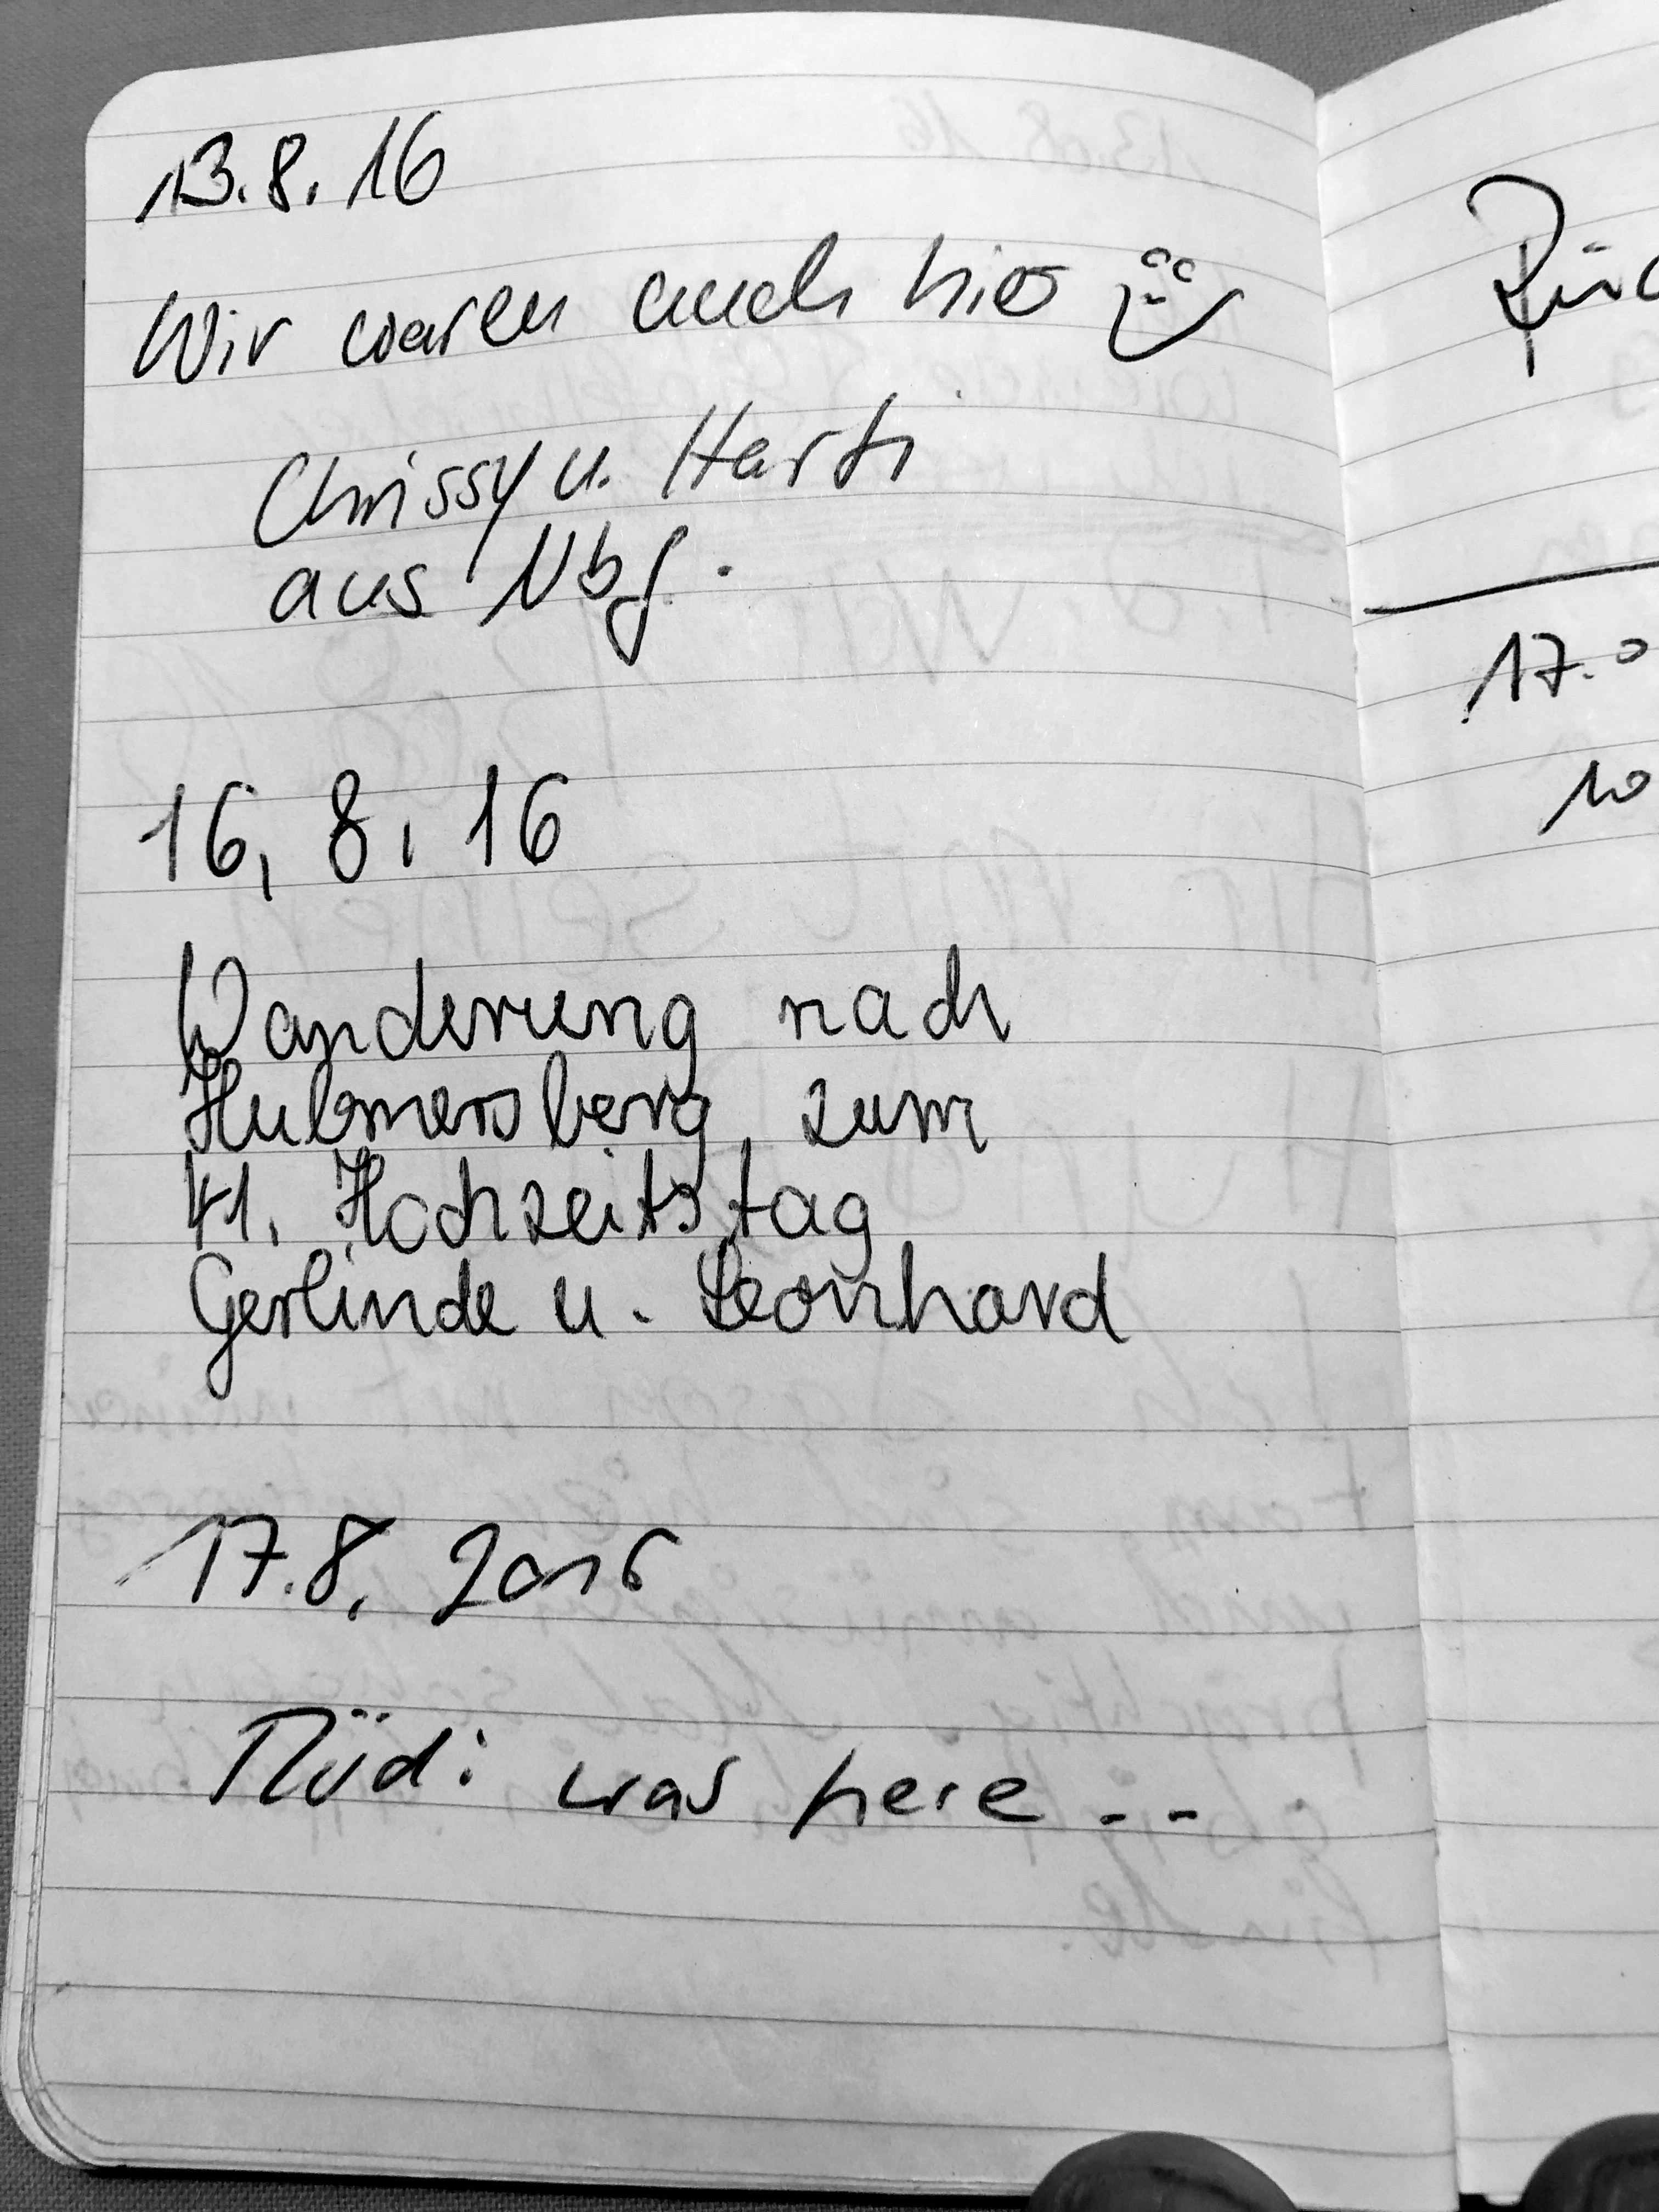 13.8.16
Wir waren auch hier
Chrissy u. Harti
aus Nbg.
16.8.16
Wanderung nach
Hubmersberg zum
41. Hochzeitstag
Gerlinde u. Leonhard
17.8.2016
Rüdi was here ..
17.0
10